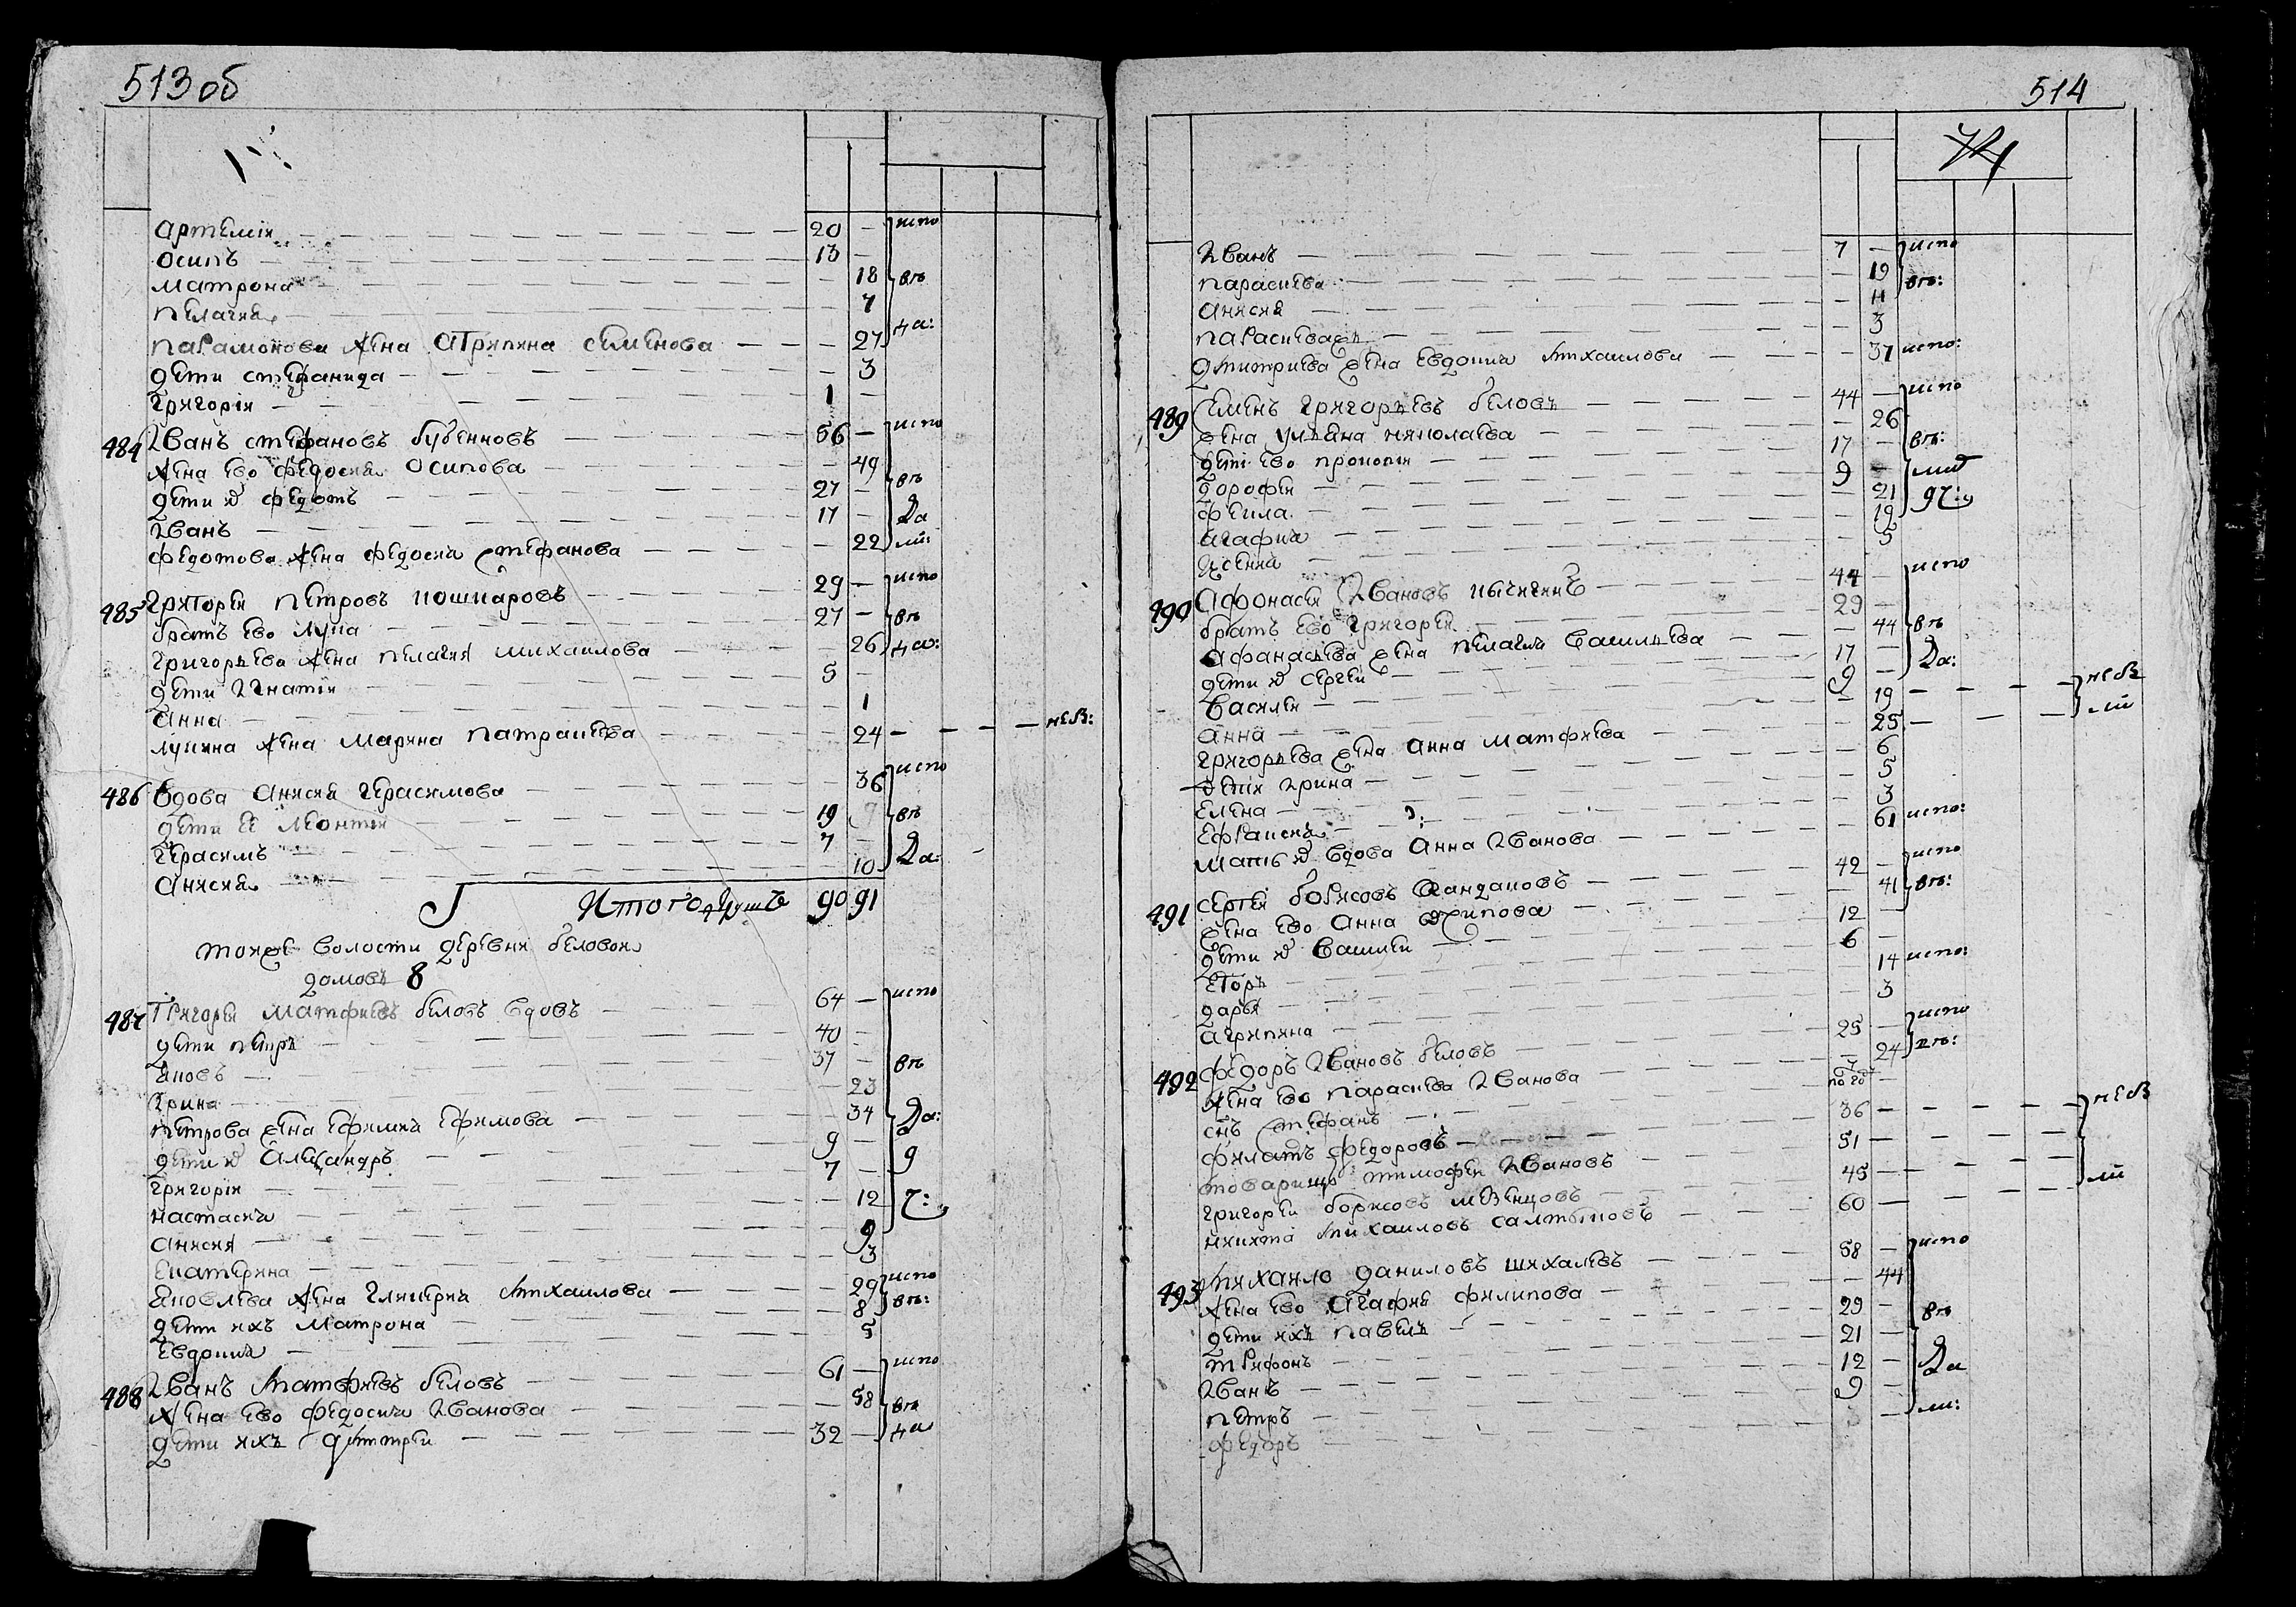 513 об
артемiи — 20 — испо
осипъ — 13 —
матрона — 18 въ
пелагея — 7
парамонова жена агрипина семенова — 27 да:
дети стефанида — 3
григорiи — 1 —
484 Иванъ стефановъ бубенновъ — 56 — испо
жена ево федосья осипова — 49
дети # федотъ — 27 — въ
Иванъ — 17 — Да
федотова жена федосья стефанова — 22 ли:
485 григореи петровъ кошкаровъ — 29 — испо
братъ ево лука — 27 — въ
григорьева жена пелагея михаилова — 26 да:
дети Игнатiи — 5 —
анна — 1
лукина жена марина патракеева — 24 — — — — нев:
486 вдова анисья герасимова — 36 испо
дети ее леонтеи — 19 въ
герасимъ — 7 —
анисья — 10 Да:
Итого душъ 90 91
тояже волости деревни беловои
домовъ 8
487 григореи матфиевъ беловъ вдовъ — 64 — испо
дети петръ — 40 —
яковъ — 37 — въ
ирина — 23
петрова жена ефимья ефимова — 34 Да:
дети # александръ — 9 —
григорiи — 7 — 9
настасья — 12 ч:
анисия — 9
екатерина — 3
яковлева жена гликерья михаилова — 29 испо
дети ихъ матрона — 8 въ:
евдокия — 5
488 Иванъ матфиевъ беловъ — 61 — испо
жена ево федосья Иванова — 58 въ
дети ихъ дмитреи — 32 — да
514
Иванъ — 7 — испо
парасковя — 19 въ:
анисья — 11
парасковья — 3
дмитриева жена евдокия михаилова — 37 испо:
489 семенъ григорьевъ беловъ — 44 — испо
жена ульяна николаева — 26
дети ево прокопеи — 17 — въ:
дорофеи — 9 —
фекла — 21
агафия — 19
Ксения — 5
490 афонасеи Ивановъ кычигинъ — 44 — испо
братъ ево григореи — 29 —
афанасьева жена пелагия васильева — 44 въ
дети # сергеи — 17 — Да:
василеи — 9 —
анна — 19 — — — — нев
григорьева жена анна матфиева — 25 — — — ли
дети ирина — 6
елена — 5
ефросинья — 3
мать # вдова анна Иванова — 61 испо:
491 сергеи борисовъ — 42 — испо
жена ево анна — 41 въ:
дети # василеи — 12 —
егоръ — 6 —
дарья — 14 испо:
агрипина — 3
492 федоръ Ивановъ беловъ — 25 — испо
жена ево парасковя Иванова — 24 въ:
снъ стефанъ — по год —
филатъ федоровъ — 36 — — — — нев
товарищъ тимофеи Ивановъ — 51 — — —
григореи борисовъ мезенцовъ — 45 — — — — ли
никита михаиловъ салтыковъ — 60 — — —
493 михаило даниловъ шихалевъ — 58 — испо
жена ево агафия филипова — 44
дети ихъ павелъ — 29 — въ
трифонъ — 21 —
Иванъ — 12 — Да
петръ — 9 —
федоръ — ли: